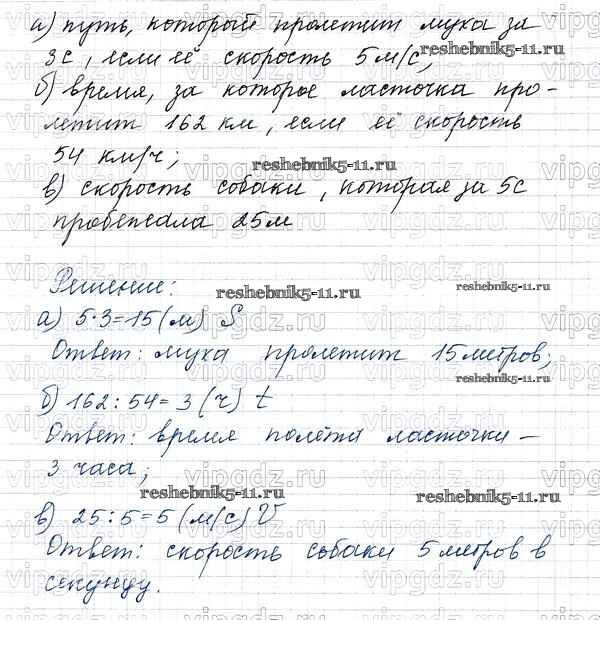 а) путь, который пролетит муха за
3с, если её скорость 5 м/с,
reshebnik5-11.ru
б) время, за которое ласточка про-
летит 162 км, если её скорость
54 км/ч;
reshebnik5-11.ru
в) скорость собаки, которая за 5с
пробежала 25м
Решение:
reshebnik5-11.ru
а) 5·3=15(м) S
Ответ: муха пролетит 15 метров;
reshebnik5-11.ru
б) 162:54=3(ч) t
Ответ: время полёта ласточки –
3 часа;
reshebnik5-11.ru
reshebnik5-11.ru
в) 25:5=5(м/с) V
Ответ: скорость собаки 5 метров в
секунду.
vipgdz.ru